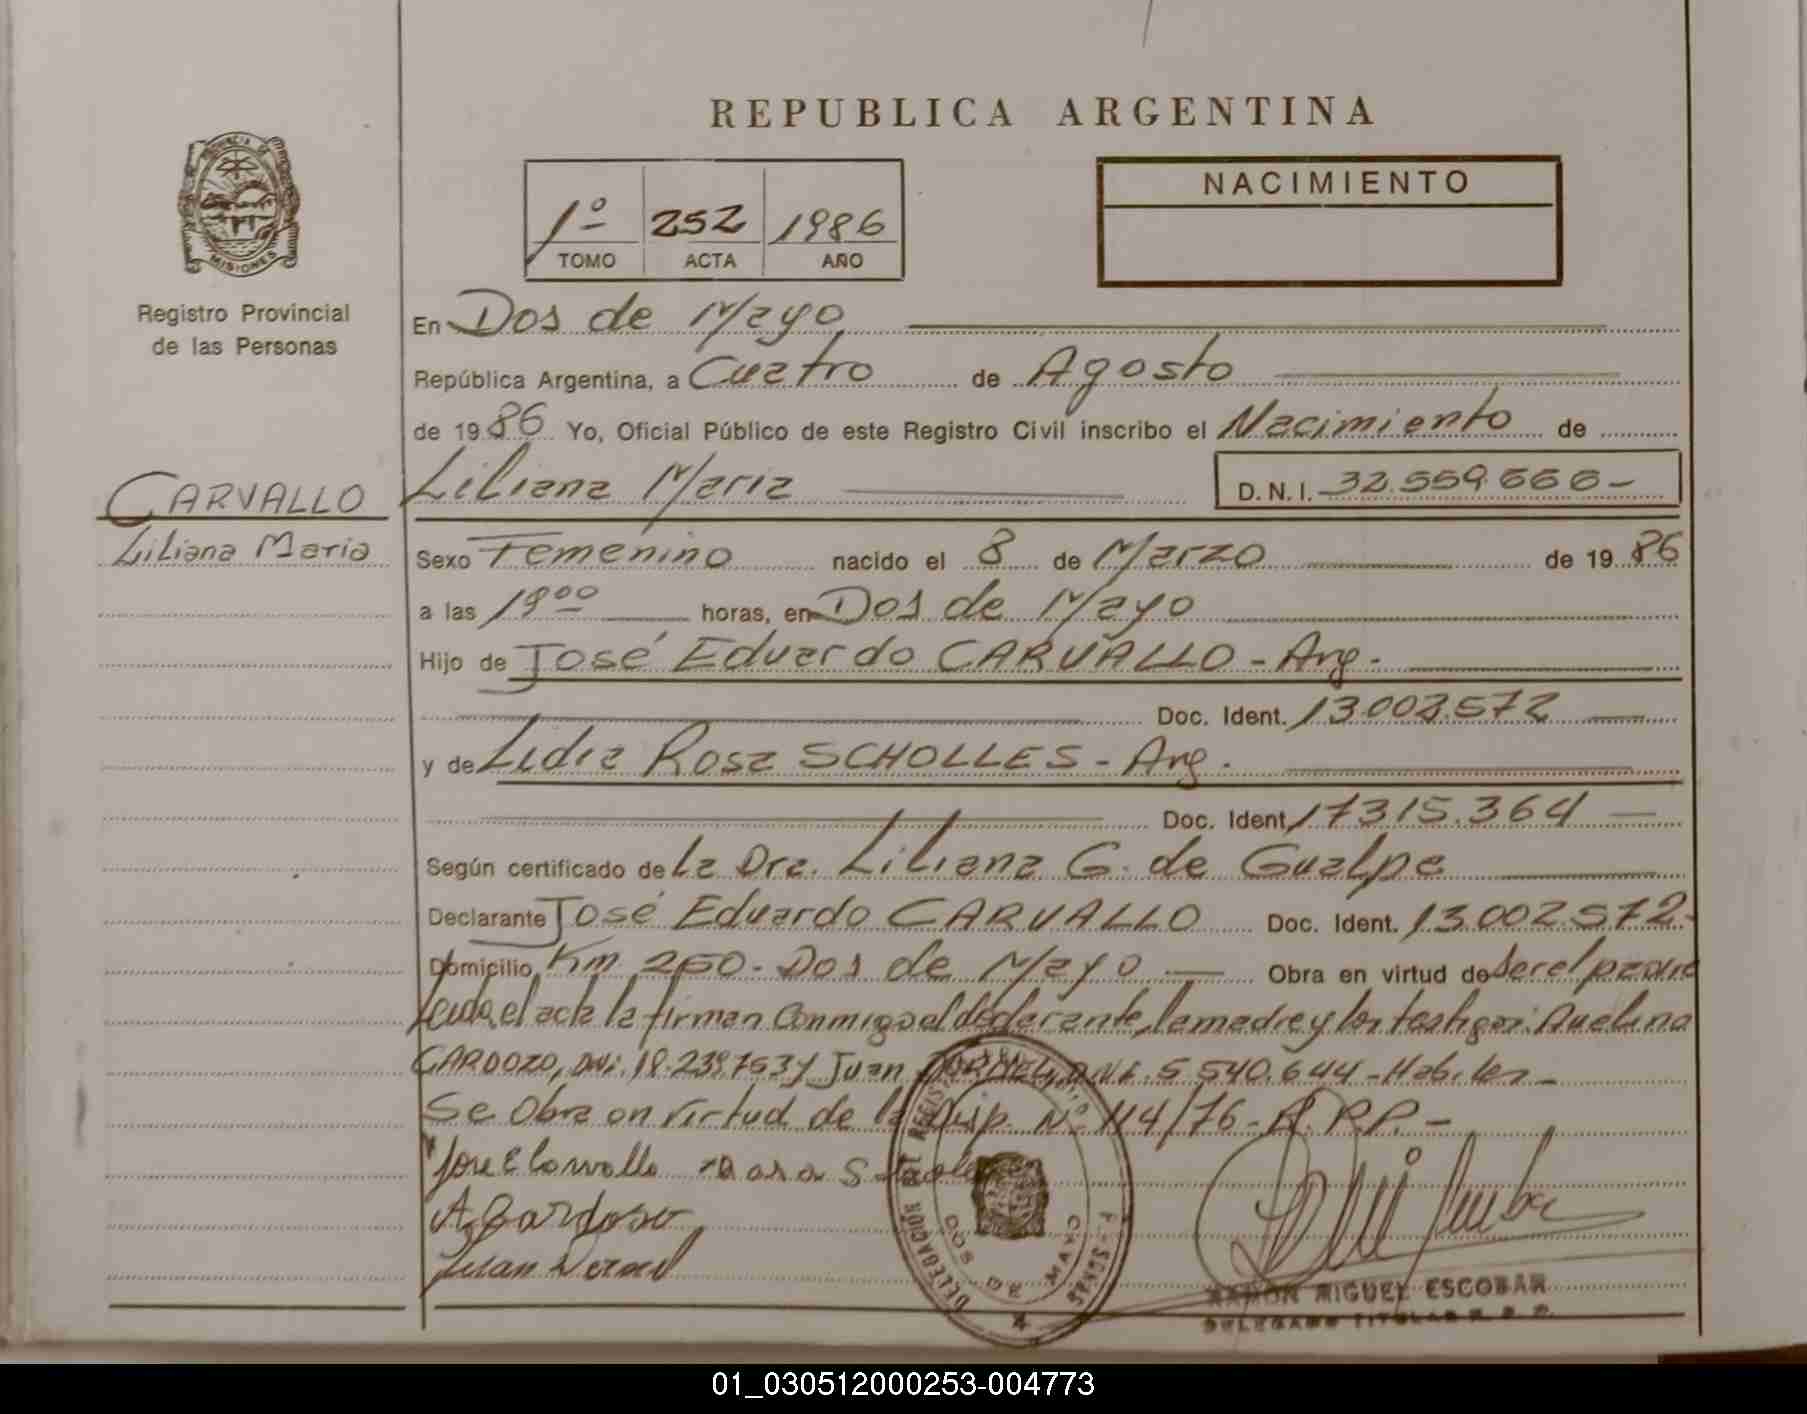 REPUBLICA ARGENTINA
PROVINCIA DE
MISIONES
Registro Provincial
de las Personas
1º 252 1986
TOMO ACTA AÑO
NACIMIENTO
En Dos de Mayo
República Argentina, a Cuatro de Agosto
de 1986 Yo, Oficial Público de este Registro Civil inscribo el Nacimiento de
CARVALLO
Liliana Maria
Liliana Maria D.N.I. 32.559.666-
Sexo Femenino nacido el 8 de Marzo de 1986
a las 19⁰⁰ horas, en Dos de Mayo
Hijo de José Eduardo CARVALLO - Arg.
Doc. Ident. 13.002.572
y de Lidia Rosa SCHOLLES - Arg.
Doc. Ident. 17315.364
Según certificado de La Dra. Liliana G. de Gualpa
Declarante José Eduardo CARVALLO Doc. Ident. 13.002.572-
Domicilio Km 260 - Dos de Mayo Obra en virtud de ser el padre
leida el acta la firman conmigo el declarante, la madre y los testigos: Avelina
CARDOZO, DNI. 18.239.763 y Juan D.N.I. 5 540.644 - Habiles -
Se Obra en virtud de la Disp. Nº 114/76 - R.P.P. -
José E Carvallo Rosa
A. Cardoso
Juan
DELEGACION DEL REGISTRO PERSONAS
DOS DE MAYO
RAMON MIGUEL ESCOBAR
DELEGADO TITULAR R. P. P.
01_030512000253-004773